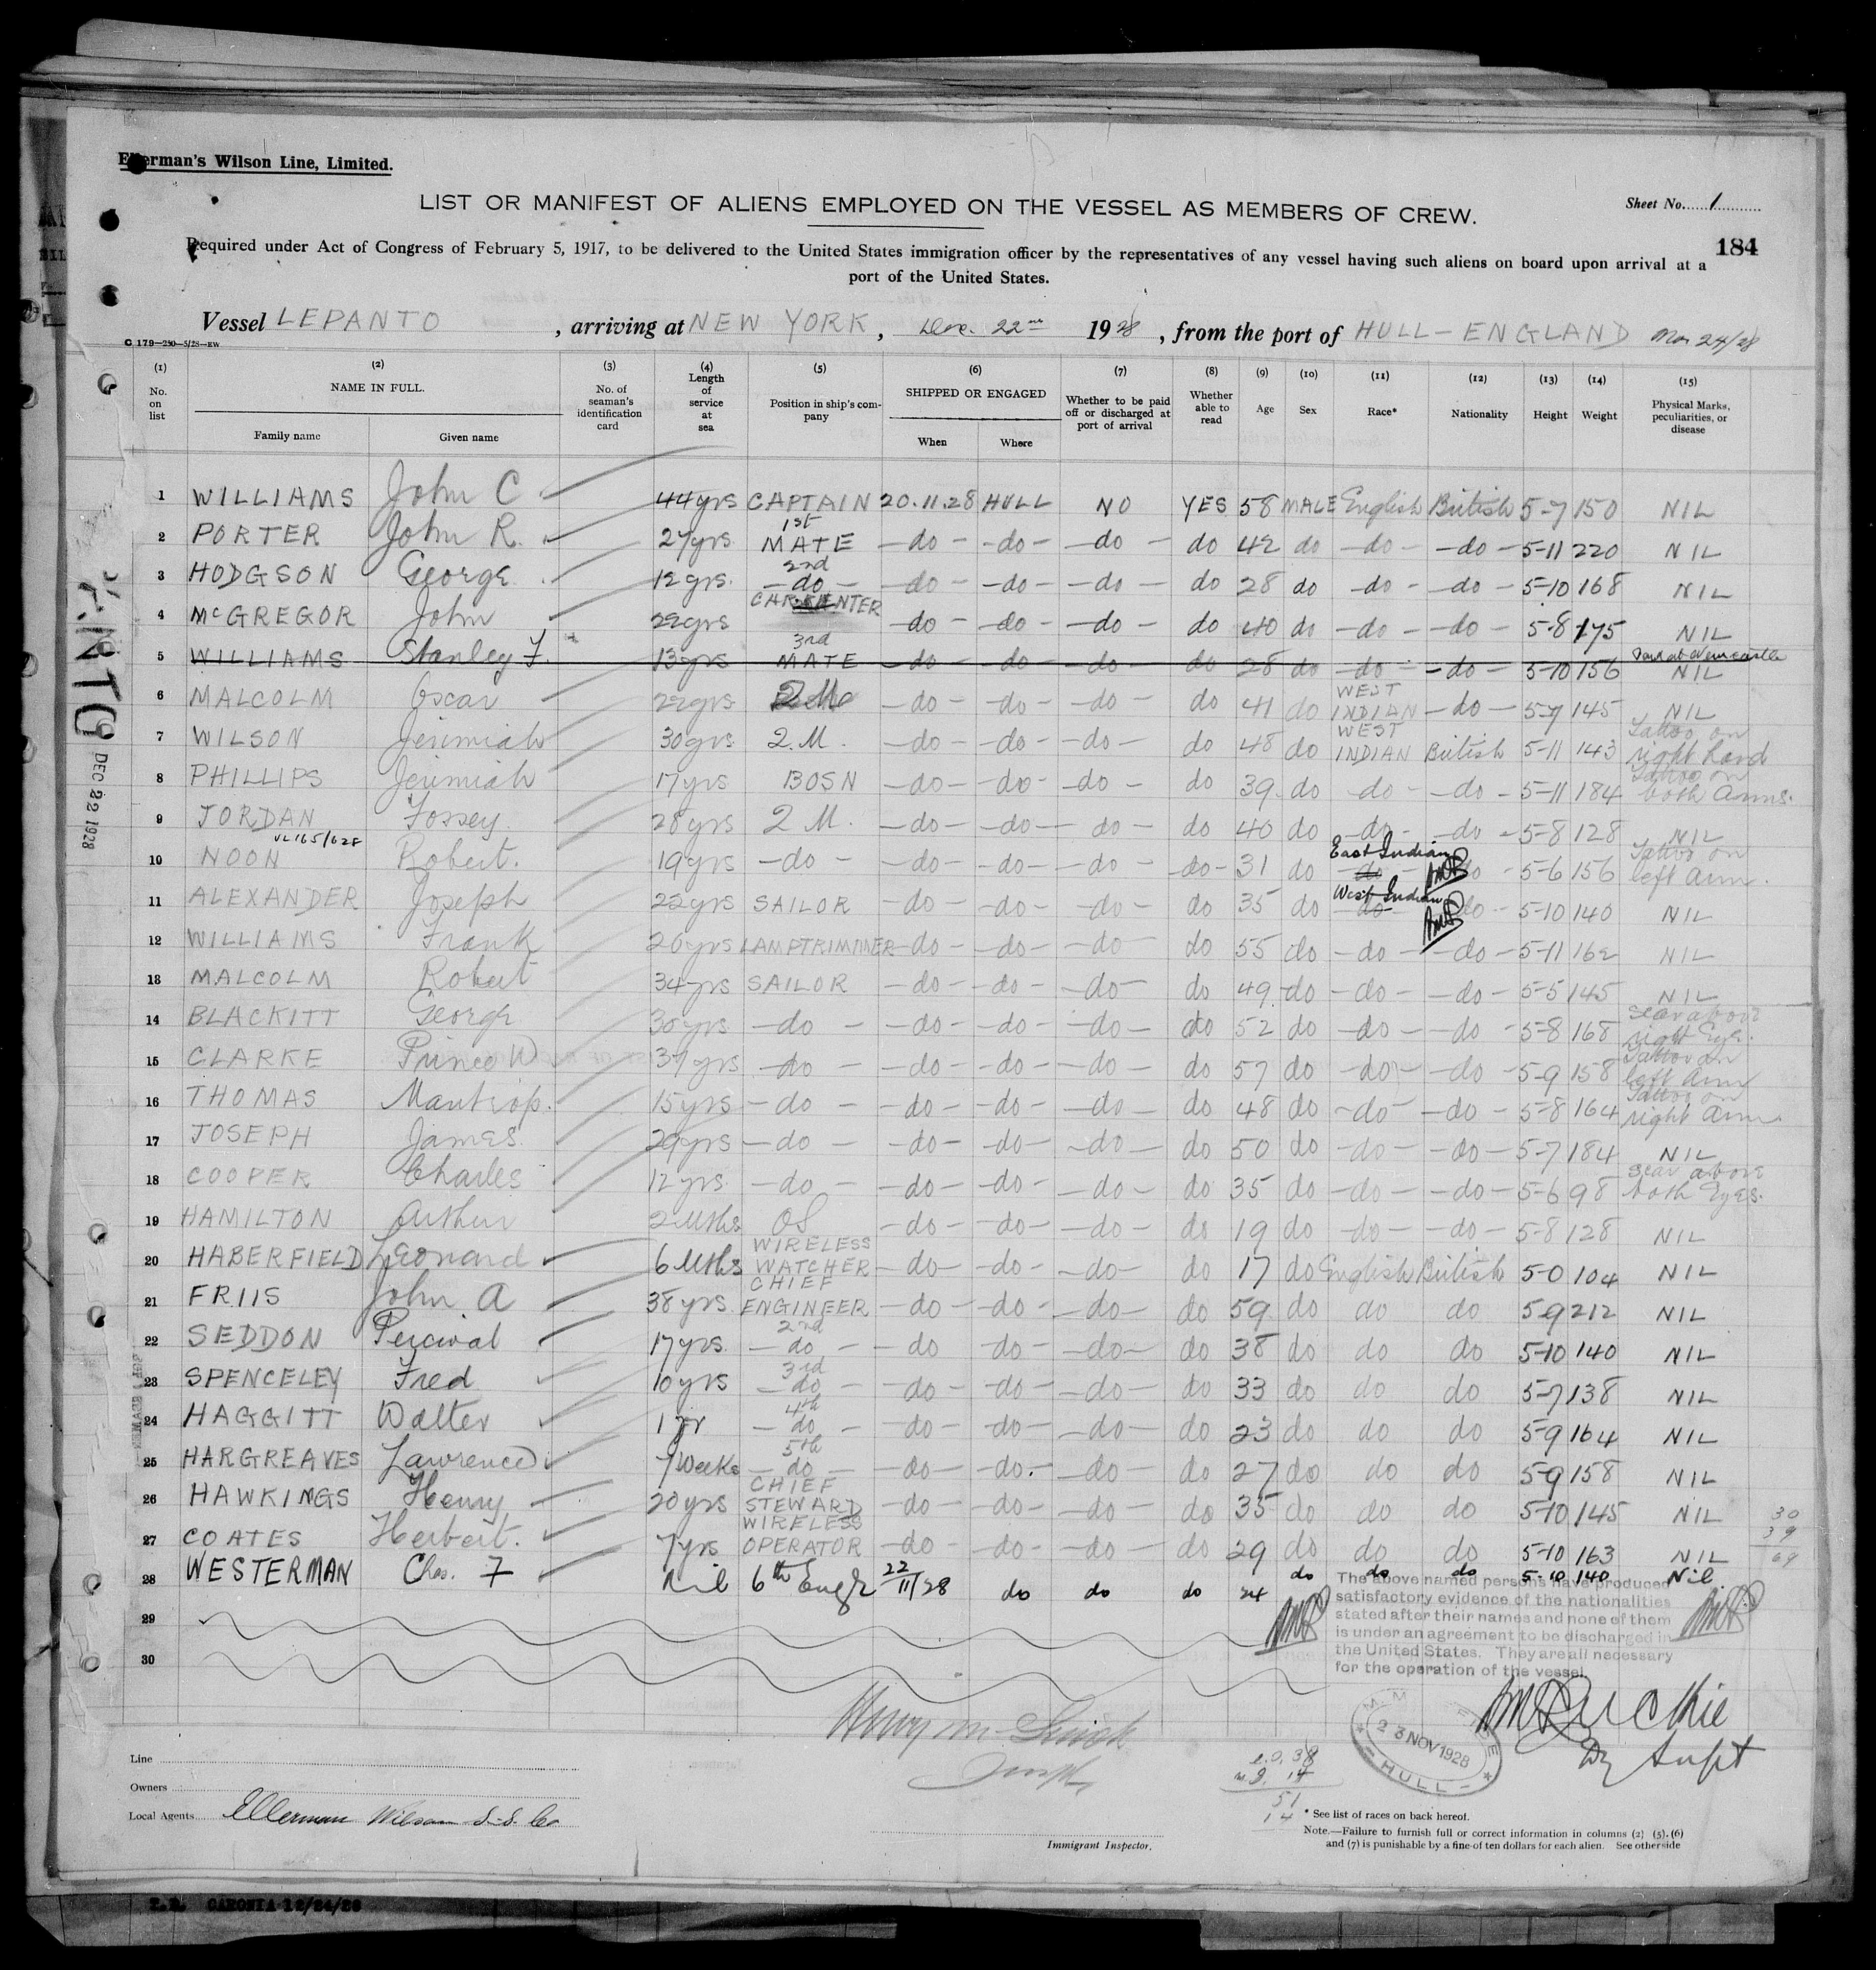 Ellerman's Wilson Line, Limited.
LIST OR MANIFEST OF ALIENS EMPLOYED ON THE VESSEL AS MEMBERS OF CREW.
Sheet No. 1
184
Required under Act of Congress of February 5, 1917, to be delivered to the United States immigration officer by the representatives of any vessel having such aliens on board upon arrival at a
port of the United States.
Vessel LEPANTO, arriving at NEW YORK, Dec. 22nd 1928, from the port of HULL-ENGLAND Nov 24/28
C 179-250-5/28-EW
(1) (2) (3) (4) (5) (6) (7) (8) (9) (10) (11) (12) (13) (14) (15)
No. on list NAME IN FULL. Family name Given name No. of seaman's identification card Length of service at sea Position in ship's company SHIPPED OR ENGAGED When Where Whether to be paid off or discharged at port of arrival Whether able to read Age Sex Race* Nationality Height Weight Physical Marks, peculiarities, or disease
1 WILLIAMS John C 44yrs CAPTAIN 20.11.28 HULL NO YES 58 MALE English British 5-7 150 NIL
2 PORTER John R. 27yrs 1st MATE -do- -do- -do- do 42 do -do- -do- 5-11 220 NIL
3 HODGSON George 12yrs. 2nd -do- -do- -do- -do- do 28 do -do- -do- 5-10 168 NIL
4 McGREGOR John 22yrs CARPENTER -do- -do- -do- do 40 do -do- -do- 5-8 175 NIL
5 WILLIAMS Stanley F. 13yrs 3rd MATE -do- -do- -do- do 28 do -do- -do- 5-10 156 NIL
6 MALCOLM Oscar 22yrs 2 M -do- -do- -do- do 41 do WEST INDIAN -do- 5-7 145 NIL
7 WILSON Jerimiah 30yrs 2.M. -do- -do- -do- do 48 do WEST INDIAN British 5-11 143 Tattoo on right hand
8 PHILLIPS Jerimiah 17yrs BOSN -do- -do- -do- do 39 do -do- -do- 5-11 184 Tattoo on both Arms.
9 JORDAN Fossey 28yrs 2 M. -do- -do- -do- do 40 do -do- -do- 5-8 128 NIL
VL165/628
10 NOON Robert. 19yrs -do- -do- -do- -do- -do- 31 do East Indian do 5-6 156 Tattoo on left arm.
11 ALEXANDER Joseph 22yrs SAILOR -do- -do- -do- do 35 do West Indian do 5-10 140 NIL
12 WILLIAMS Frank 26yrs LAMPTRIMMER -do- -do- -do- do 55 do -do- -do- 5-11 162 NIL
13 MALCOLM Robert 34yrs SAILOR -do- -do- -do- do 49 do -do- -do- 5-5 145 NIL
14 BLACKITT George 30yrs -do- -do- -do- -do- do 52 do -do- -do- 5-8 168 Scar above right Eye.
15 CLARKE Prince W 37yrs -do- -do- -do- -do- do 57 do -do- -do- 5-9 158 Tattoo on left arm
16 THOMAS Mantrop. 15yrs -do- -do- -do- -do- do 48 do -do- -do- 5-8 164 Tattoo on right arm
17 JOSEPH James. 29yrs -do- -do- -do- -do- do 50 do -do- -do- 5-7 184 NIL
18 COOPER Charles 12yrs. -do- -do- -do- -do- do 35 do -do- -do- 5-6 98 Scar above both Eyes.
19 HAMILTON Arthur 2 Mths OS -do- -do- -do- do 19 do -do- -do- 5-8 128 NIL
20 HABERFIELD Leonard 6 Mths WIRELESS WATCHER -do- -do- -do- do 17 do English British 5-0 104 NIL
21 FRIIS John A 38yrs. CHIEF ENGINEER -do- -do- -do- do 59 do do do 5-9 212 NIL
22 SEDDON Percival 17yrs. 2nd -do- -do -do- -do- do 38 do do do 5-10 140 NIL
23 SPENCELEY Fred 10yrs 3rd -do- -do- -do- -do- do 33 do do do 5-7 138 NIL
24 HAGGITT Walter 1 yr 4th -do- -do- -do- -do- do 23 do do do 5-9 164 NIL
25 HARGREAVES Lawrence 7 Weeks 5th -do- -do- -do- -do- do 27 do do do 5-9 158 NIL
26 HAWKINGS Henry 20yrs CHIEF STEWARD -do- -do- -do- do 35 do do do 5-10 145 NIL
27 COATES Herbert. 7yrs WIRELESS OPERATOR -do- -do- -do- do 29 do do do 5-10 163 NIL
28 WESTERMAN Chas. F Nil 6th Engr 22/11/28 do do do 24 do do do 5-10 140 Nil.
29
30
30
39
69
The above named persons have produced
satisfactory evidence of the nationalities
stated after their names and none of them
is under an agreement to be discharged in
the United States. They are all necessary
for the operation of the vessel
23 NOV 1928
HULL
Supt
51
14
Line
Owners
Local Agents Ellerman Wilson S.S. Co
Immigrant Inspector.
* See list of races on back hereof.
Note.—Failure to furnish full or correct information in columns (2) (5), (6)
and (7) is punishable by a fine of ten dollars for each alien. See otherside
DEC 22 1928
CARONIA 12/24/28